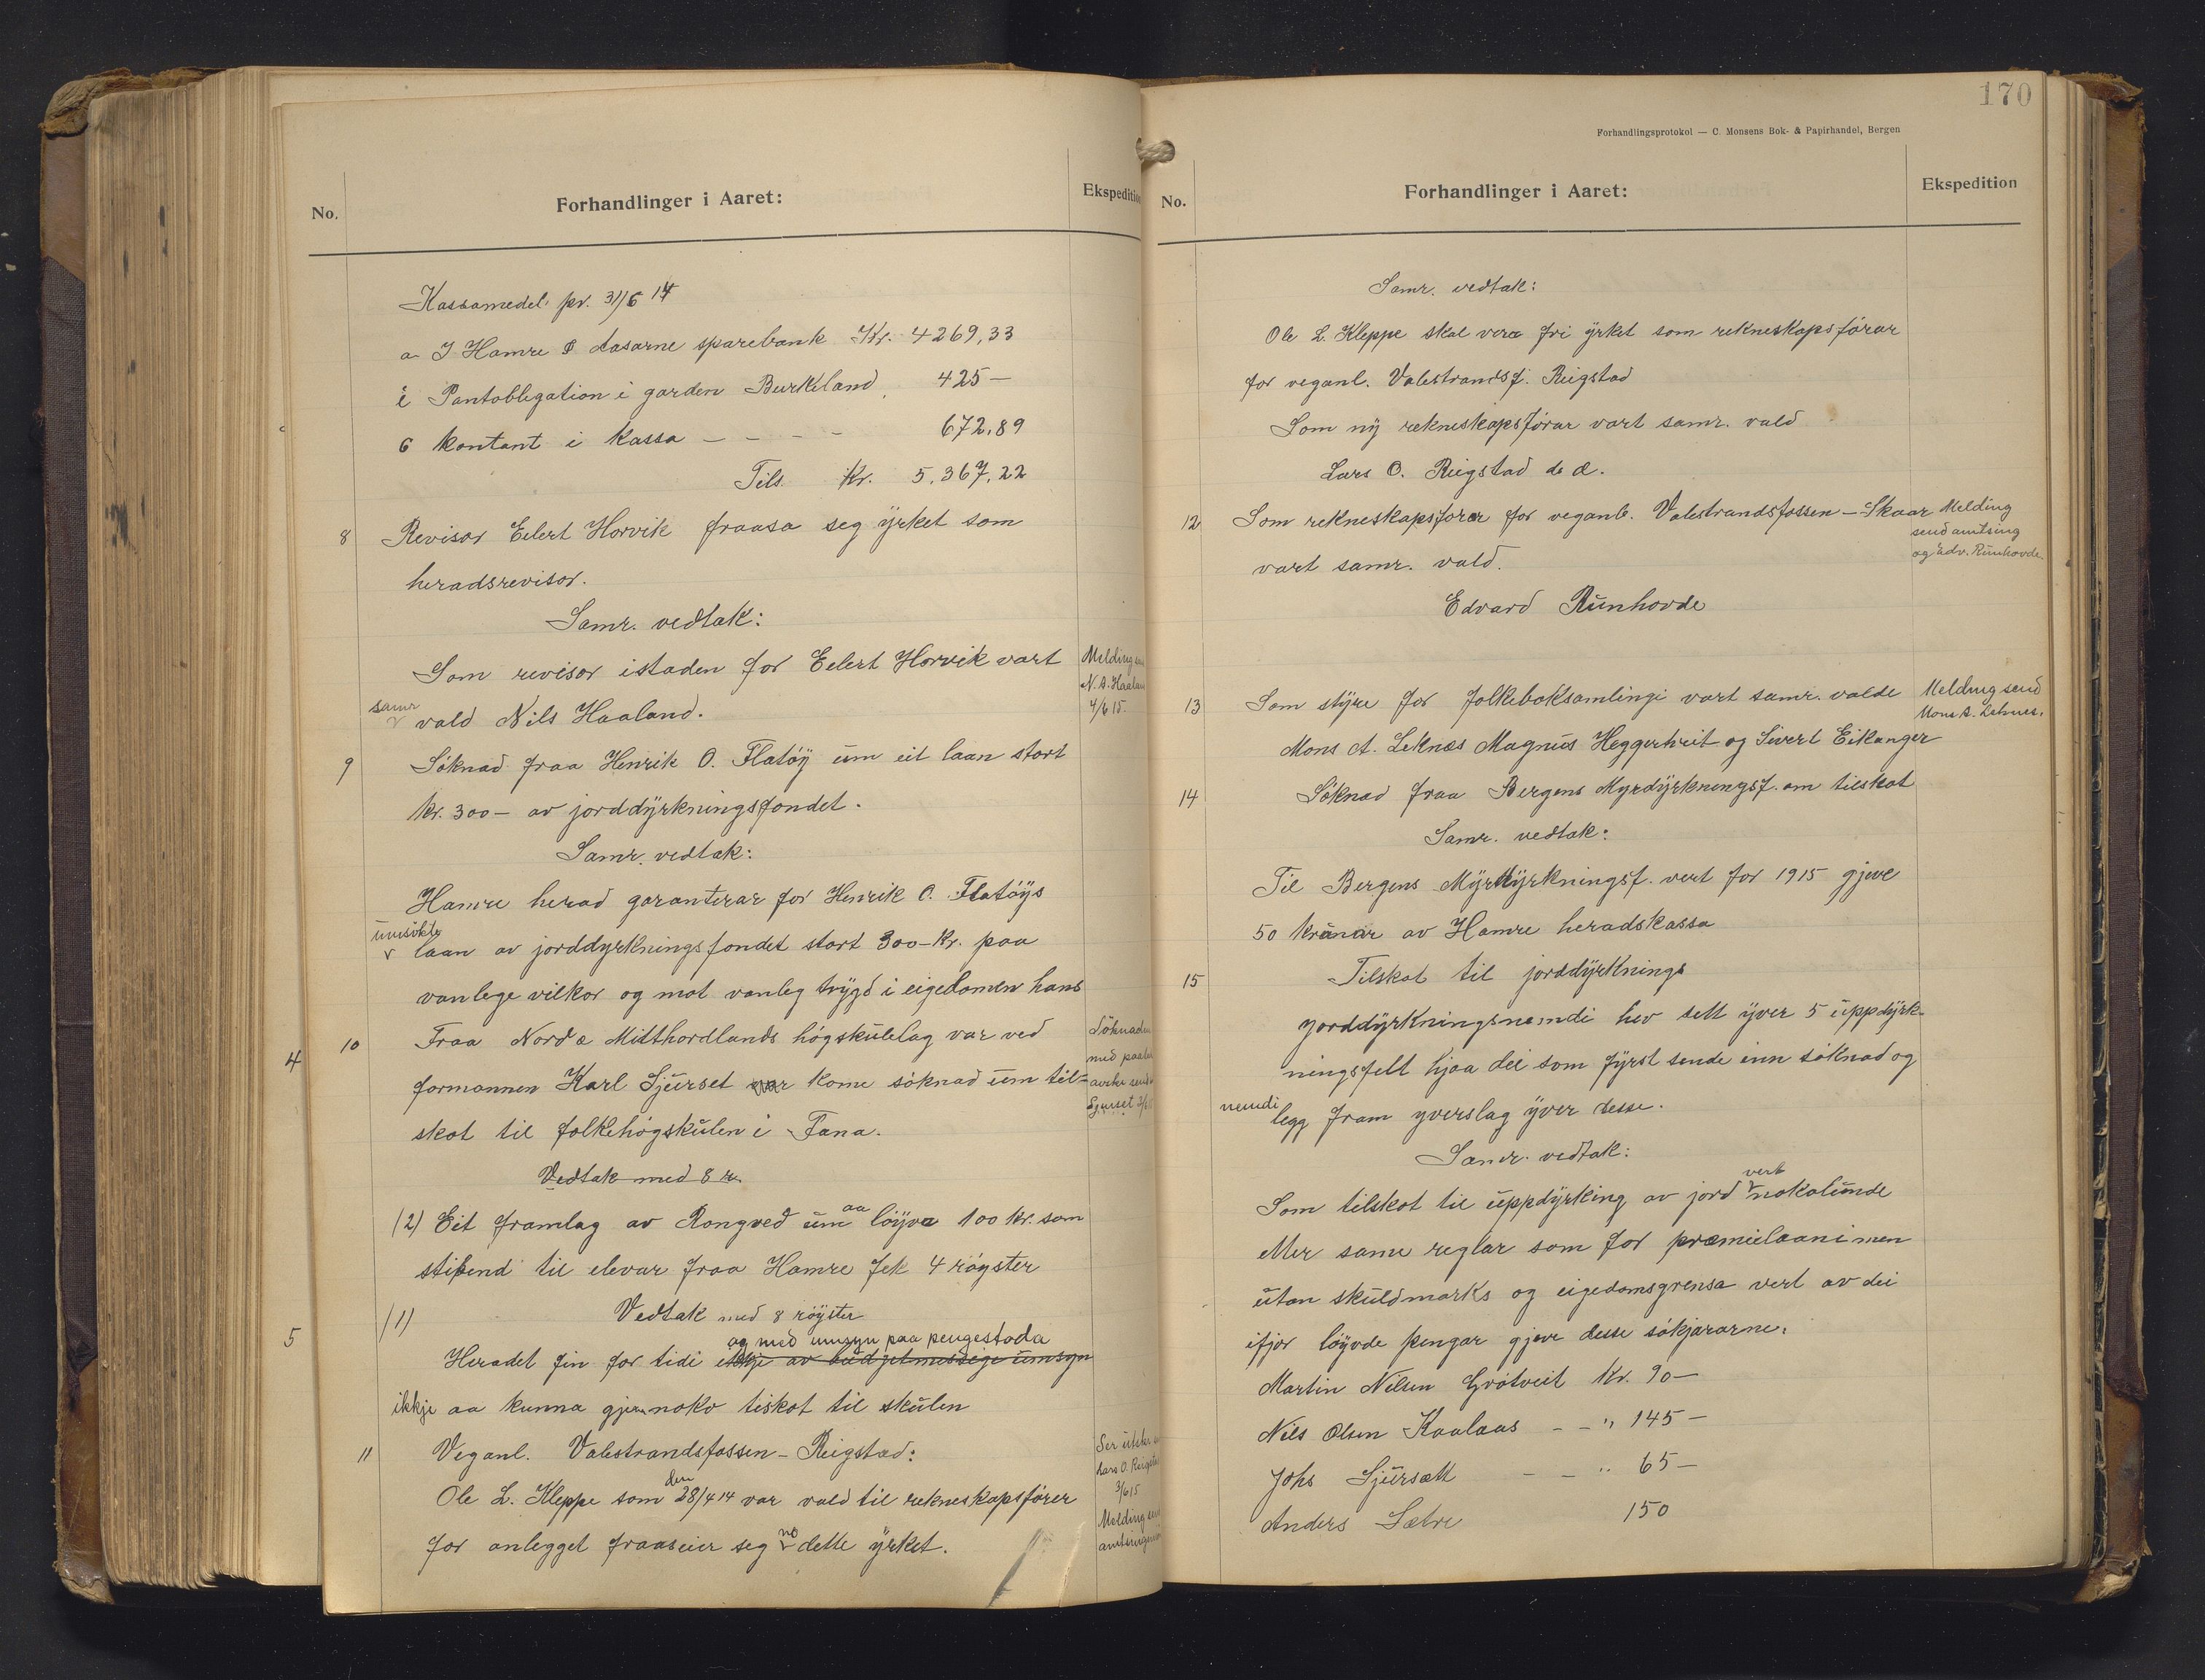 No.
Forhandlinger i Aaret:
Ekspedition
Kassamedel pr. 31/6 14
a I Hamre & Aasarne sparebank Kr. 4269,33
i Pantobligation i garden Burkeland, 425—
6 kontant i Kassa — — — — 672,89
Tils. Kr. 5.367,22
8 Revisor Eilert Horvik fraasa seg yrket som
heradsrevisor.
Samr. vedtak:
Som revisor istaden for Eilert Horvik vart
samr
vald Nils Haaland.
Melding
N. A. Haaland
4/6 15.
9 Söknad fraa Henrik O. Flatöy um eit laan stort
kr. 300— av jorddyrkningsfondet.
Samr. vedtak:
Hamre herad garanterar for Henrik O. Flatöys
umsökte
laan av jorddyrkningsfondet stort 300—Kr. paa
vanlege vilkor og mot vanleg trygd i eigedomen hans
4 10 Fraa Nord & Midthordlands högskulelag var ved
formannen Karl Sjurset var kome söknad um til-
skot til folkehögskulen i Fana.
Söknaden
med
Sjurset
Vedtak med 8 r.
(2) Eit framlag av Rongved um aa löyva 100 kr. som
stipend til elevar fraa Hamre fek 4 röyster
(1) Vedtak med 8 röyster
og med umsyn paa pengestoda
5 Heradet fin for tidi ikkje av budgetmessige umsyn
ikkje aa kunna gjeva noko tilskot til skulen
11 Veganl. Valestrandsfossen – Reigstad:
Ole L. Kleppe som den 28/4 14 var vald til rekneskapsförer
for anlegget fraaseier seg no dette yrket.
Lars O. Reigstad
3/6 15
Melding
170
Forhandlingsprotokol — C. Monsens Bok- & Papirhandel, Bergen
No.
Forhandlinger i Aaret:
Ekspedition
Samr. vedtak:
Ole L. Kleppe skal vera fri yrket som rekneskapsförar
for veganl. Valestrandsf. Reigstad
Som ny rekneskapsförar vart samr. vald
Lars O. Reigstad d. æ.
12 Som rekneskapsförar for veganl. Valestrandsfossen – Skaar
vart samr. vald.
Edvard Runhovde
Melding
send amtsing
og Edv. Runhovde.
13 Som styre for folkeboksamlingi vart samr. valde
Mons A. Leknes Magnus Heggertveit og Sivert Eikanger
Melding send
Mons A. Leknes.
14 Söknad fraa Bergens Myrdyrkningsf. om tilskot
Samr. vedtak:
Til Bergens Myrdyrkningsf. vert for 1915 gjeve
50 kronar av Hamre heradskassa
15 Tilskot til jorddyrknings
Jorddyrkningsnemdi hev sett yver 5 uppdyrk-
ningsfelt hjaa dei som fyrst sende inn söknad og
nemdi
legg fram yverslag yver desse.
Samr. vedtak:
Som tilskot til uppdyrking av jord vert nokolunde
etter same reglar som for præmielaani men
utan skuldmarks og eigedomsgrensa vert av dei
ifjor löyvde pengar gjeve desse sökjararne:
Martin Nilsen Grötveit Kr. 90—
Nils Olsen Kaalaas – – " 145—
Johs Sjursætt – – " 65—
Anders Sætre 150